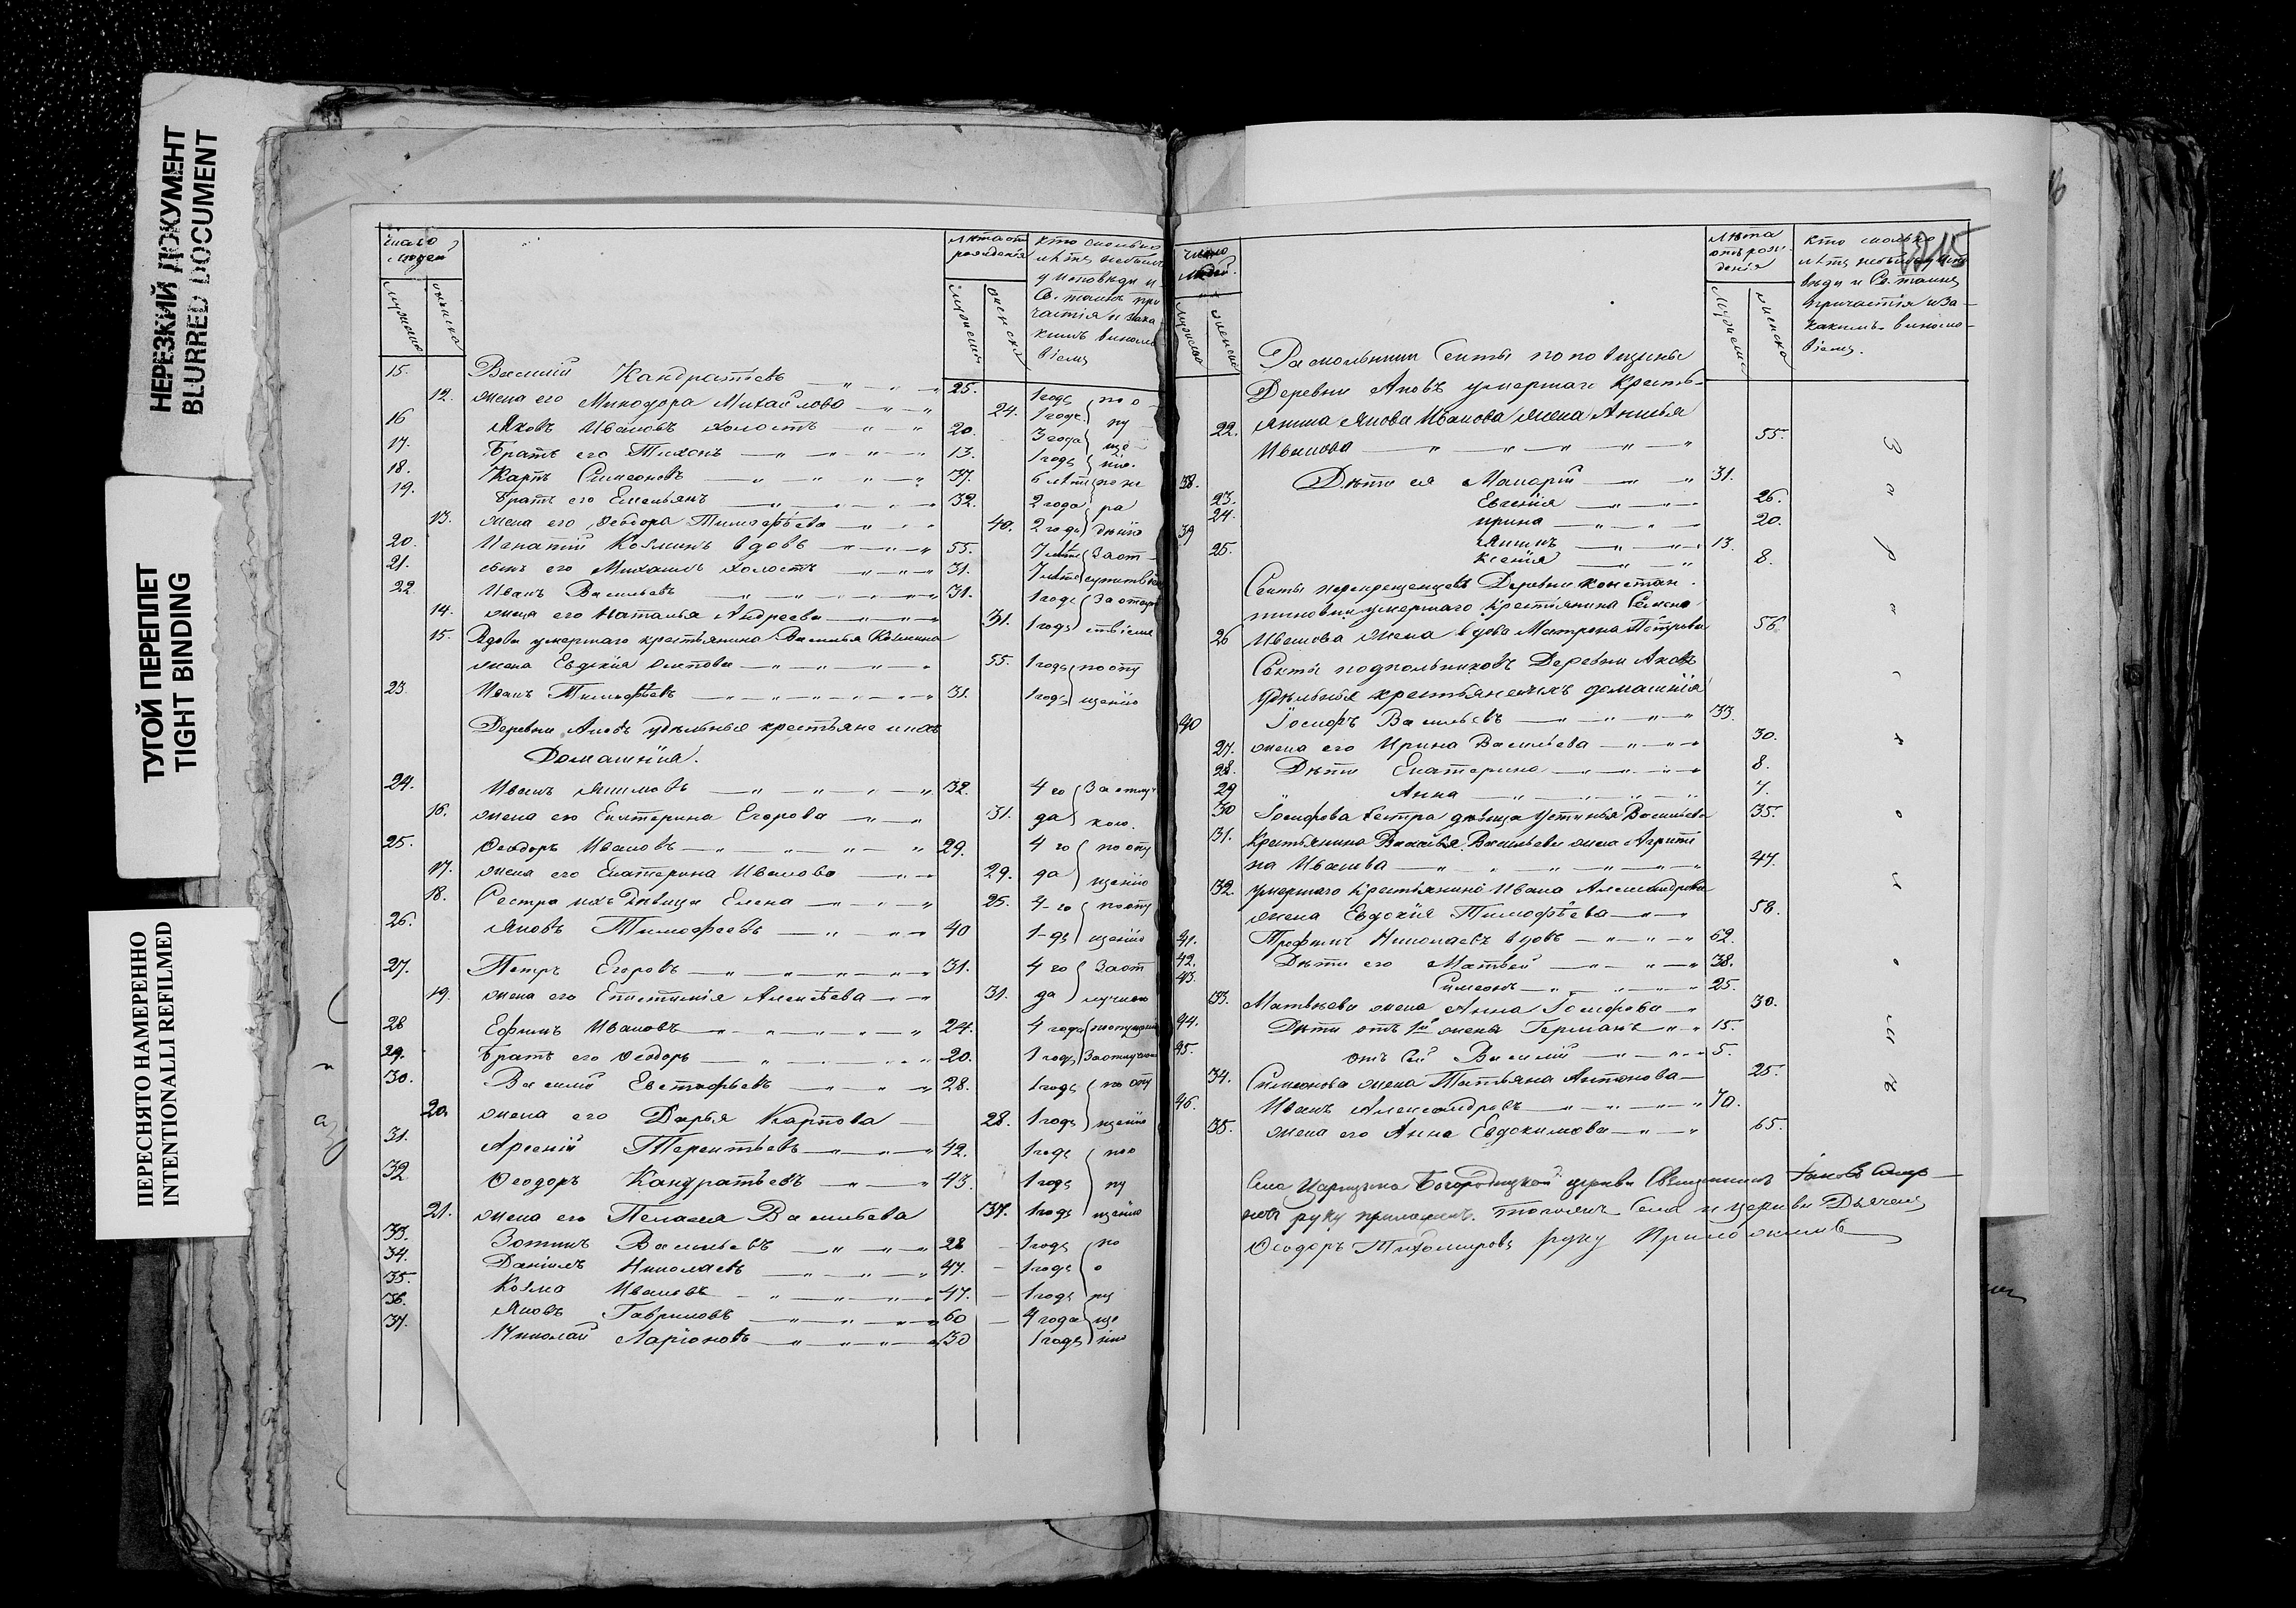 НЕРЕЗКИЙ ДОКУМЕНТ
BLURRED DOCUMENT
ТУГОЙ ПЕРЕПЛЕТ
TIGHT BINDING
ПЕРЕСНЯТО НАМЕРЕННО
INTENTIONALLI REFILMED
число людей
лѣта отъ рожденія
кто сколько
лѣтъ небылъ
у исповѣди и
Св. таинъ при
частія и зака
кимъ винословіемъ
15. Василий Кандратьевъ 25. 1 годъ по о
12. жена его Минодора Михайлова 24. 1 годъ пу
16 Яковъ Ивановъ холостъ 20. 3 года ще
17. Братъ его Тихонъ 13. 1 годъ нію.
18. Карпъ Симеоновъ 37. 6 лѣтъ по не
19. Братъ его Емельянъ 32. 2 года ра
13. жена его Ѳеодора Тимофѣева 40. 2 года дѣнію
20. Игнатій Козминъ вдовъ 55. 7 лѣтъ За от
21. сынъ его Михаилъ холостъ 31. 7 лѣтъ
22 Иванъ Васильевъ 31. 1 годъ
14. жена его Наталья Андреева 31. 1 годъ
15. Вдова умершаго крестьянина Василья Козмина
жена Евдокія Осипова 55. 1 годъ по опу
23. Иванъ Тимофѣевъ 31. 1 годъ щенію
Деревни Аковъ удѣльныя крестьяне и ихъ
Домашнія.
24. Иванъ Якимовъ 32. 4 го За отлуч
16. жена его Екатерина Егорова 31. да кою.
25. Ѳеодоръ Ивановъ 29. 4 го по опу
17. жена его Екатерина Иванова 29. да щенію
18. Сестра ихъ Дѣвица Елена 25. 4-го по опу
26. Яковъ Тимофеевъ 40 1-дъ щенію
27. Петръ Егоровъ 31. 4 го За от
19. жена его Епистимія Алексѣева 31. да лучкою
28 Ефимъ Ивановъ 24. 4 года по опущенію
29. Братъ его Ѳеодоръ 20. 1 годъ За отлучкою
30. Василий Евстафьевъ 28. 1 годъ по опу
20. жена его Дарья Карпова 28. 1 годъ щенію
31. Арсеній Терентьевъ 42. 1 годъ по о
32 Ѳеодоръ Кандратьевъ 43. 1 годъ пу
21. жена его Пелагея Васильева 37. 1 годъ щенію
33. Зотикъ Васильевъ 28 1 годъ по
34. Даніилъ Николаевъ 47. 1 годъ о
35. Козма Ивановъ 47. 1 годъ пу
36. Яковъ Гавриловъ 60 4 года ще
37. Николай Ларіоновъ 30 1 годъ нію
число людей.
Лѣта отъ рожденія
кто сколько
лѣтъ небылъ у испо
вѣди и Св. таинъ
причастія и за
какимъ винословіемъ.
Раскольники Секты поповщины
Деревни Аковъ умершаго Кресть
22. янина Якова Иванова жена Анисья
Иванова 55.
38. Дѣти ея Макарій 31.
23. Евгенія 26.
24. Ирина 20.
39 Якимъ 13.
25. Ксенія 8.
Секты перекрещенцевъ Деревни Констан
тиновки умершаго Крестьянина Семена
26 Иванова жена вдова Матрона Петрова 56
Секты подпольниковъ Деревни Аковъ
Удѣльныя крестьяне и ихъ домашнія
40 Іосифъ Васильевъ 33.
27. жена его Ирина Васильева 30.
28. Дѣти Екатерина 8.
29 Анна 7.
30 Іосифова Сестра дѣвица Устинья Васильева 35.
31. Крестьянина Василья Васильева жена Агрипи
на Иванова 47.
32. умершаго Крестьянина Ивана Александрова
жена Евдокія Тимофѣева 58.
41. Трофимъ Николаевъ вдовъ 62.
42. Дѣти его Матвей 38.
43. Симеонъ 25.
33. Матвѣева жена Анна Іосифова 30.
44. Дѣти отъ 1й жены Германъ 15.
45. отъ сей Василий 5.
34. Симеонова жена Татьяна Антонова 25.
46. Иванъ Александровъ 70.
35. жена его Анна Евдокимова 65.
За расколомъ
Села Царицына Богородицкой церкви Священникъ Іаковъ
руку приложилъ. тогожъ Села и церкви Дьячекъ
Ѳеодоръ Тихомировъ руку Приложилъ